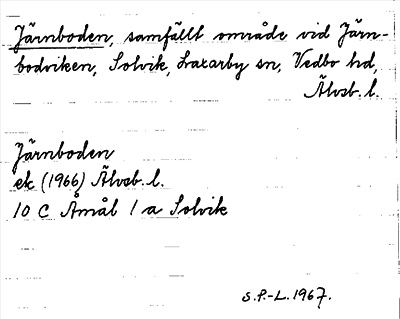 Järnboden, samfällt område vid Järn-
bodviken, Solvik, Laxarby sn, Vedbo hd,
Älvsb. l.
Järnboden
ek (1966) Älvsb. l.
10 C Åmål 1 a Solvik
S.P.-L. 1967.